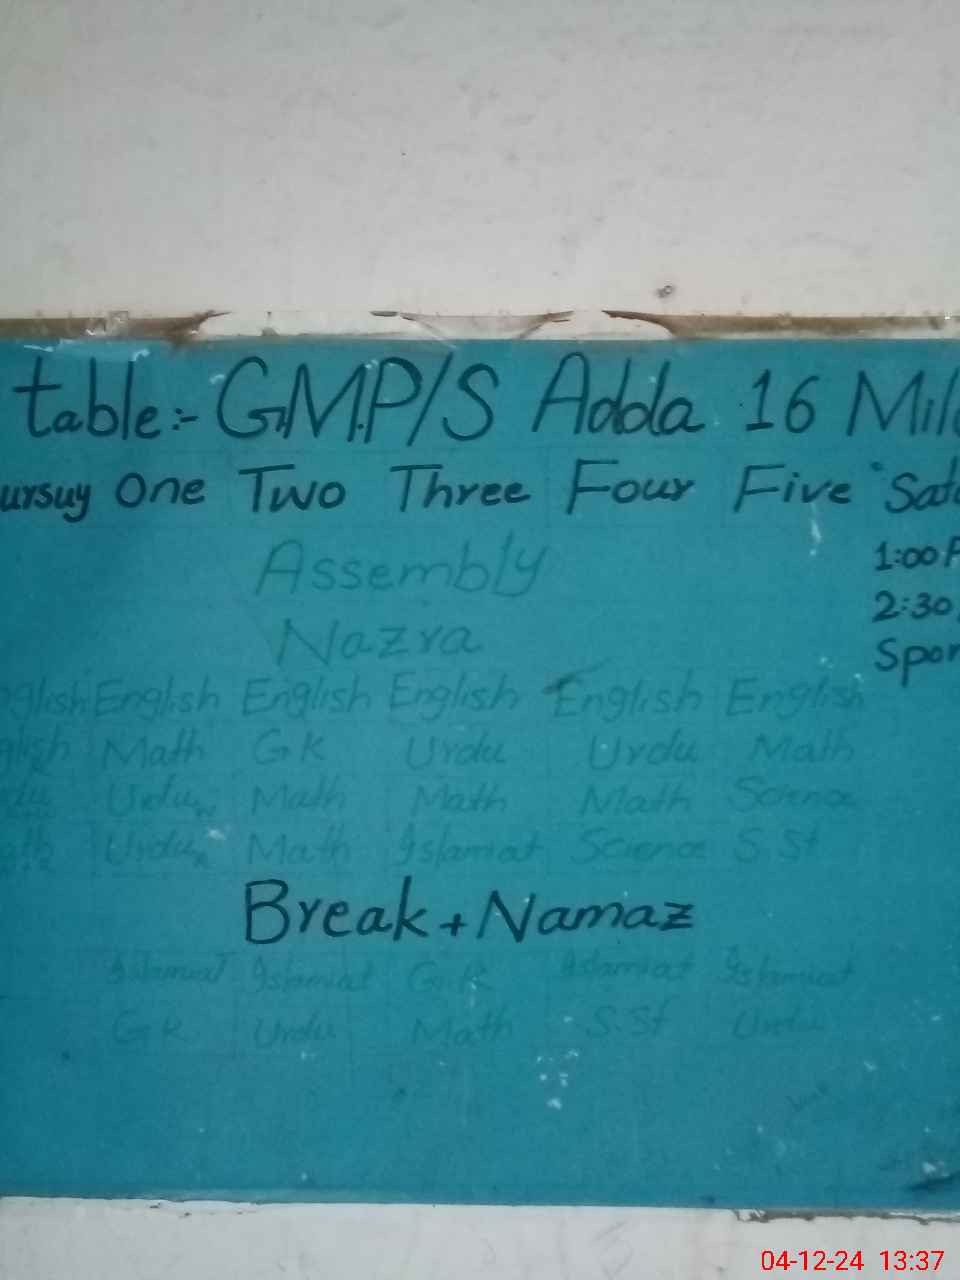 table:- G.M.P/S Adda 16 Mil
ursuy One Two Three Four Five Sat
1:00
Assembly
2:30
Nazra
Spor
nglish English English English English English
glish Math G K Urdu Urdu Math
du Urdu Math Math Math Science
ath Urdu Math Islamiat Science S.St
Break + Namaz
Islamiat Islamiat G.K Islamiat Islamiat
G K Urdu Math S.St Urdu
04-12-24 13:37